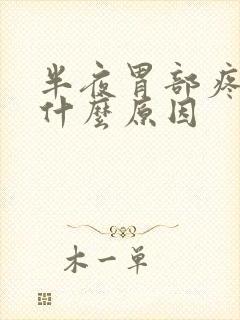 半夜胃部疼
什麼原因
木一单